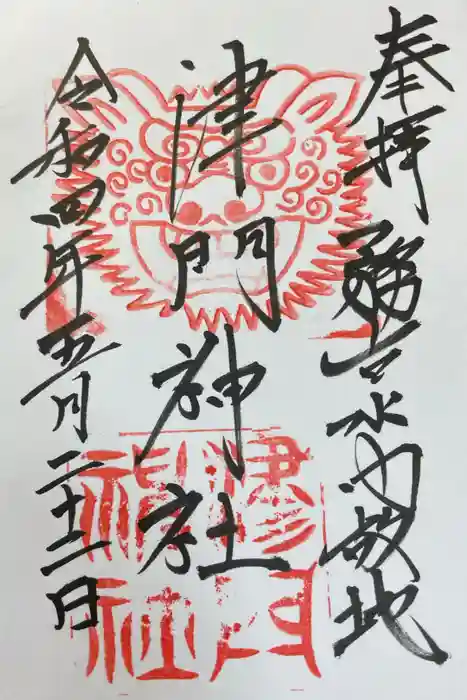 奉拝
務古水門故地
津門神社
令和四年五月二十二日
津門
神社